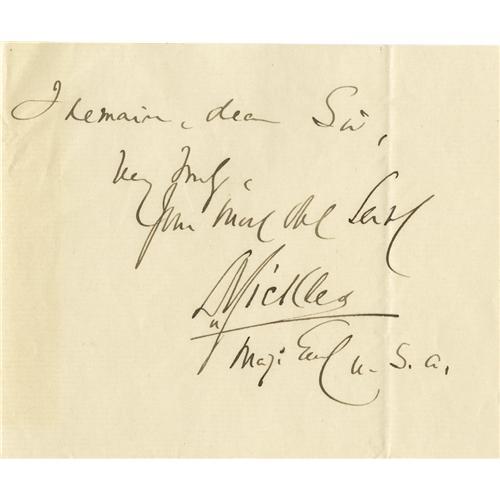 I remain, dear Sir,
Very truly,
Your most Obt Servt
D Sickles
Maj: Genl U. S. A.